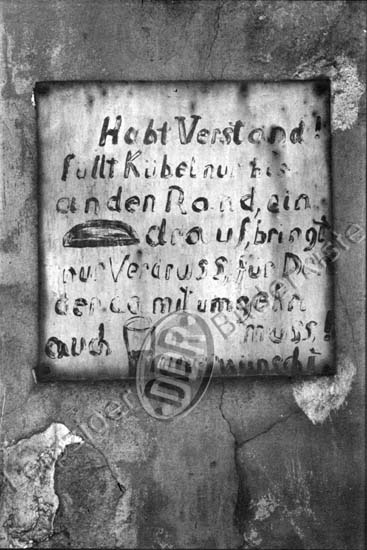 Habt Verstand!
füllt Kübel nur bis
an den Rand, ein
drauf, bringt
nur Verdruss, für De
der da mit umgehn
auch muss!
wünscht
DDR
Bilder Kiste